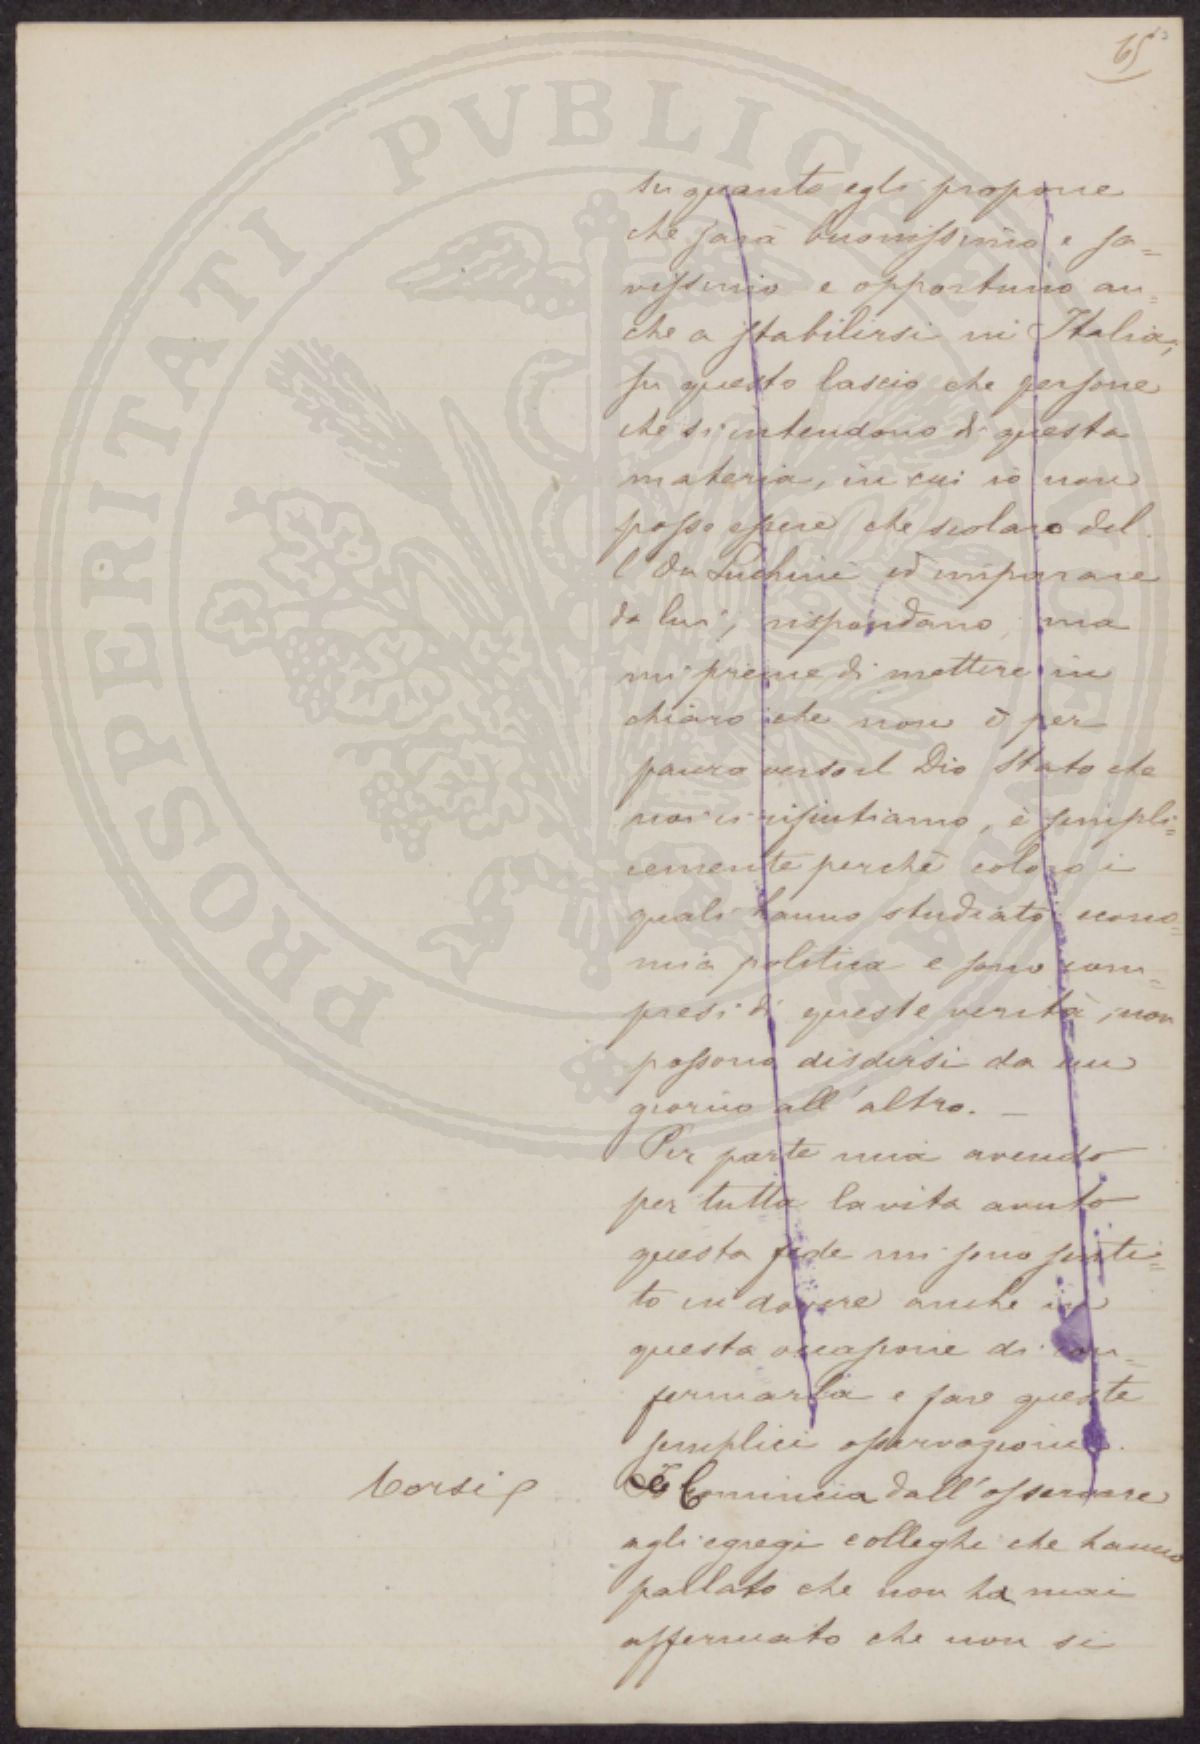 65
su quanto egli propone
che sarà buonissimo e sa=
vissimo e opportuno an=
che a stabilirsi in Italia;
su questo lascio che persone
che si intendono di questa
materia, in cui io non
posso essere che scolaro del
l' On Luchini ed imparare
da lui, rispondano; ma
mi preme di mettere in
chiaro che non è per
paura verso il Dio Stato che
noi ci rifiutiamo, è sempli=
cemente perchè coloro i
quali hanno studiato econo=
mia politica e sono com=
presi di queste verità, non
possono disdirsi da un
giorno all'altro. —
Per parte mia avendo
per tutta la vita avuto
questa fede mi sono senti=
to in dovere anche in
questa occasione di con=
fermarla e fare queste
semplici osservazioni.
Corsi
Comincia dall'osservare
agli egregi colleghi che hanno
parlato che non ha mai
affermato che non si
PROSPERITATI PVBLICAE AVGENDAE